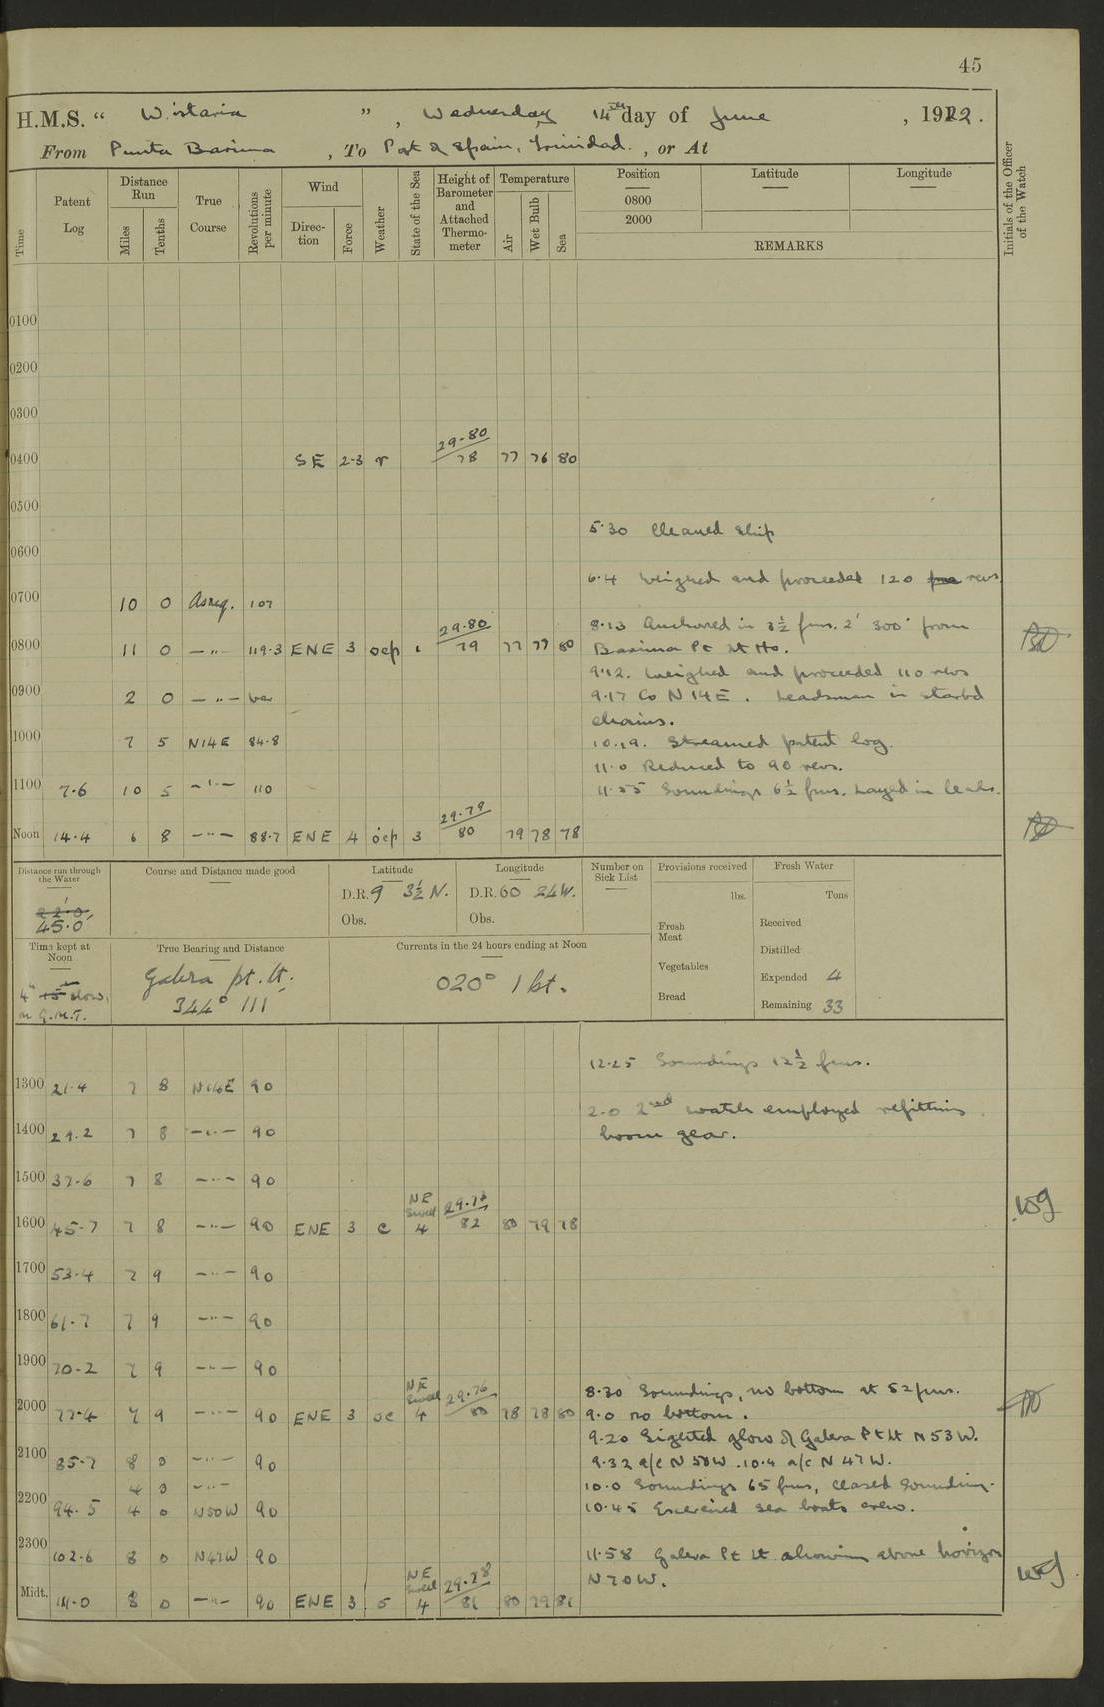 45
H.M.S. " Wistaria ", Wednesday 14th day of June, 1922.
From Punta Barima, To Port of Spain, Trinidad., or At
Time
Patent Log
Distance Run
Miles
Tenths
True Course
Revolutions per minute
Wind
Direction
Force
Weather
State of the Sea
Height of Barometer and Attached Thermometer
Temperature
Air
Wet Bulb
Sea
Position
0800
2000
Latitude
Longitude
REMARKS
Initials of the Officer of the Watch
0100
0200
0300
0400 SE 2-3 r 29.80 / 78 77 76 80
0500
5.30 Cleaned ship
0600
6.4 Weighed and proceeded 120 revs
0700 10 0 As req. 107
8.13 Anchored in 3½ fms. 2' 300° from
0800 11 0 —"— 119.3 ENE 3 ocp 1 29.80 / 79 77 77 80
Barima Pt Lt Ho.
9.12. Weighed and proceeded 110 revs
0900 2 0 —"— var
9.17 Co N14E. Leadsman in starbd
chains.
1000 7 5 N14E 84.8
10.19. Streamed patent log.
11.0 Reduced to 90 revs.
1100 7.6 10 5 —"— 110
11.55 Soundings 6½ fms. Layed in leads.
Noon 14.4 6 8 —"— 88.7 ENE 4 ocp 3 29.79 / 80 79 78 78
Distance run through the Water
22.0
45.0
Course and Distance made good
Latitude
D.R. 9 3½ N.
Obs.
Longitude
D.R. 60 24W.
Obs.
Number on Sick List
Provisions received
lbs.
Fresh Meat
Vegetables
Bread
Fresh Water
Tons
Received
Distilled
Expended 4
Remaining 33
Time kept at Noon
4h slow
on G.M.T.
True Bearing and Distance
Galera pt. lt.
344° 111
Currents in the 24 hours ending at Noon
020° 1 kt.
12.25 Soundings 12½ fms.
1300 21.4 7 8 N14E 90
2.0 2nd watch employed refitting
1400 29.2 7 8 —"— 90
boom gear.
1500 37.6 7 8 —"— 90
1600 45.7 7 8 —"— 90 ENE 3 c NE Swell 4 29.78 / 82 80 79 78
1700 53.4 7 9 —"— 90
1800 61.7 7 9 —"— 90
1900 70.2 7 9 —"— 90
8.30 Soundings, no bottom at 52 fms.
2000 77.4 7 9 —"— 90 ENE 3 oc NE Swell 4 29.76 / 80 78 78 80
9.0 no bottom.
9.20 Sighted glow of Galera Pt Lt N53W.
2100 85.7 8 0 —"— 90
9.32 a/c N50W. 10.4 a/c N47W.
4 0 —"—
10.0 Soundings 65 fms, ceased sounding.
2200 94.5 4 0 N50W 90
10.45 Exercised sea boats crew.
2300 102.6 8 0 N47W 90
11.58 Galera Pt Lt showing above horizon
N70W.
Midt. 111.0 8 0 —"— 90 ENE 3 NE Swell 4 29.78 / 81 80 79 81